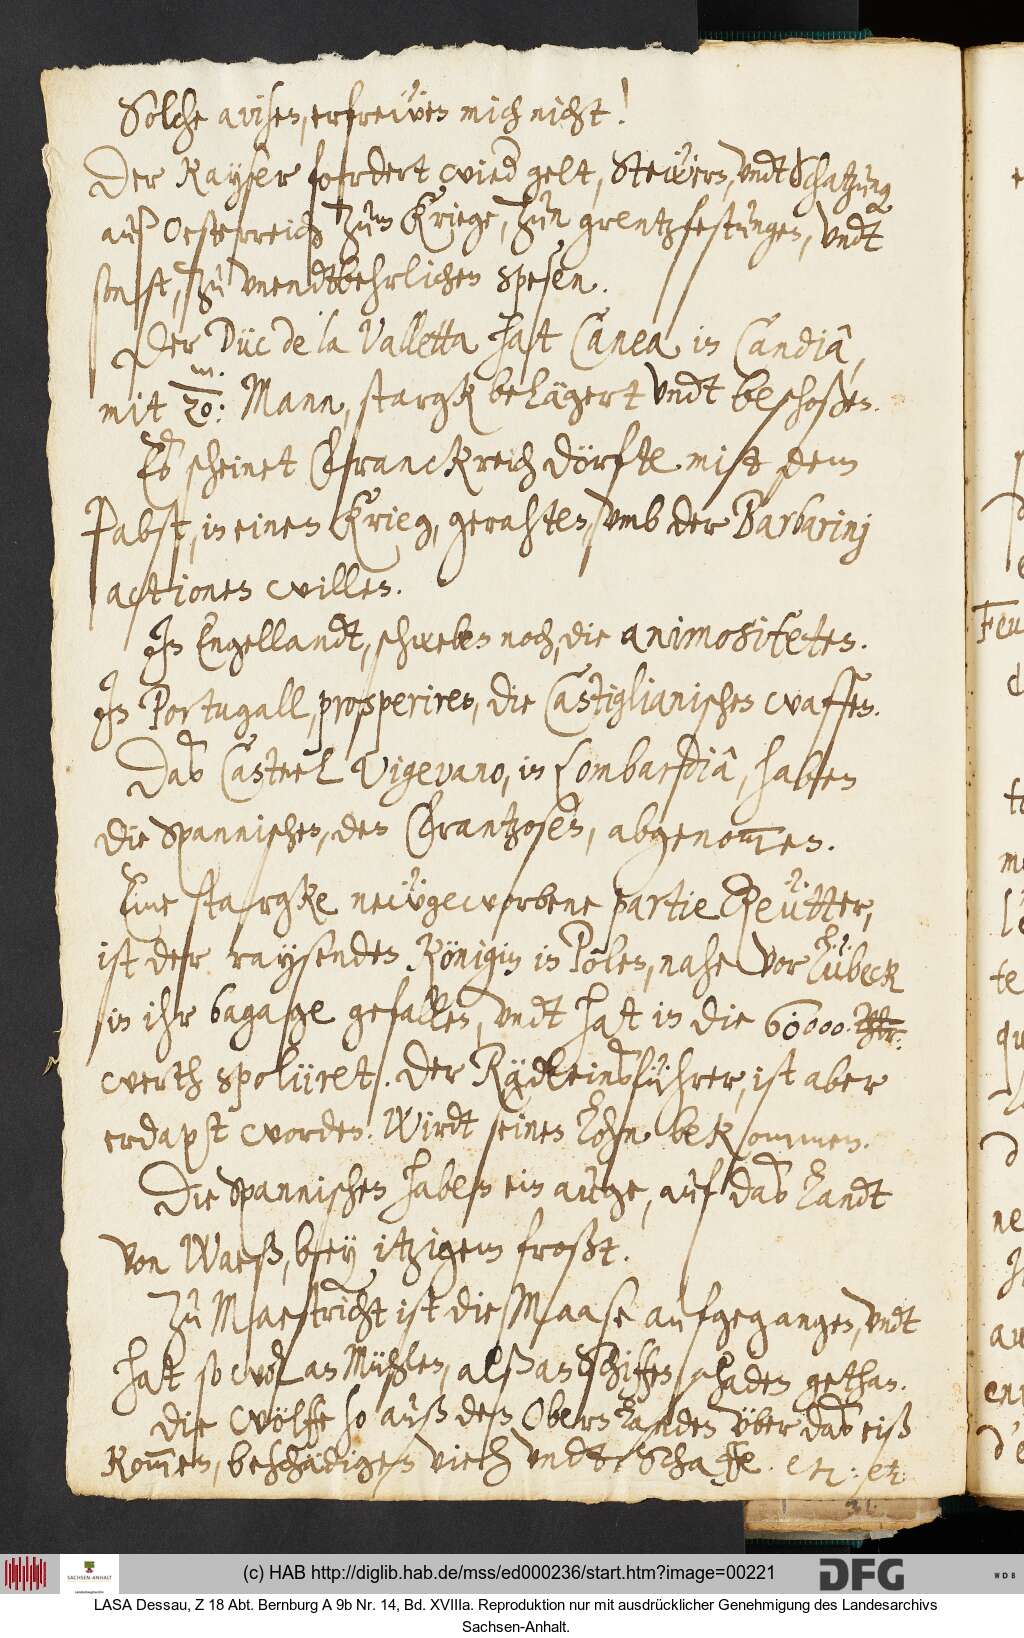 Solche avisen, erfreẅen mich nicht!
Der Kayser fordert wied gelt, Steẅern, vndt Schatzung
auß Oesterreich zum Kriege, zun grentzfestungen, vndt
sonst, zu vnendtbehrlichen spesen.
Der Düc de la Valletta hat Canea in Candiâ,
mit 20: m. Mann, stargk belägert vndt beschoßen.
Es scheinet Franckreich dörfte mit dem
Pabst, in einen Krieg, gerahten, vmb der Barbarinj
actionen willen.
In Engellandt, schweben noch, die animositeten.
In Portugall, prosperiren, die Castiglianischen waffen.
Das Casteel Vigevano, in Lombardiâ, haben
die Spannischen, den Frantzosen, abgenom̅en.
Eine stargke neẅgeworbene partie Reütter,
ist der raysenden Königin in Polen, nahe vor Lübeck
in ihr bagage gefallen, vndt hat in die 60000 Thlr:
werth spoliiret. Der Rädleinsführer, ist aber
erdapt worden. Wirdt seinen lohn bekommen.
Die Spannischen haben ein auge, auf das Landt
von Waeß, bey itzigem froßt.
Zu Mastricht ist die Maase aufgegangen, vndt
hat so wol an Mühlen, alß an Schiffen schaden gethan.
Die wölffe so auß den Obern Landen vber das eiß
Kom̅en, beschädigen vieh vndt Schaffe. etc: etc
(c) HAB http://diglib.hab.de/mss/ed000236/start.htm?image=00221
SACHSEN-ANHALT
DFG
WDB
LASA Dessau, Z 18 Abt. Bernburg A 9b Nr. 14, Bd. XVIIIa. Reproduktion nur mit ausdrücklicher Genehmigung des Landesarchivs
Sachsen-Anhalt.